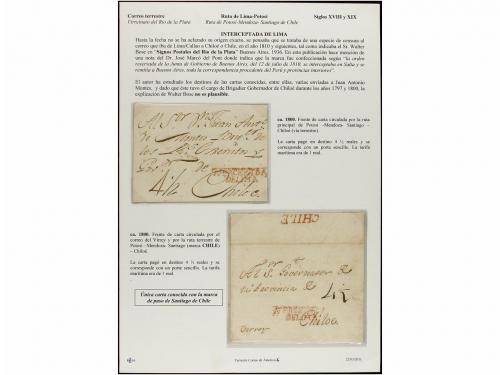 Correo terrestre
Virreinato del Río de la Plata
Ruta de Lima-Potosí
Ruta de Potosí-Mendoza- Santiago de Chile
Siglos XVIII y XIX
INTERCEPTADA DE LIMA
Hasta la fecha no se ha aclarado su origen exacto, se pensaba que se trataba de una especie de censura al
correo que iba de Lima/Callao a Chiloé o Chile, en el año 1810 y siguientes, tal como indicaba el Sr. Walter
Bose en "Signos Postales del Río de la Plata" Buenos Aires. 1936. En esta publicación hace mención de
una nota del Dr. José Marcó del Pont donde indica que la marca fue confeccionada según "la orden
reservada de la Junta de Gobierno de Buenos Aires, del 12 de julio de 1810, se interceptaba en Salta y se
remitía a Buenos Aires, toda la correspondencia procedente del Perú y provincias interiores".
El autor ha estudiado los destinos de las cartas conocidas, entre ellas, varias enviadas a Juan Antonio
Montes, y dado que éste tuvo el cargo de Brigadier Gobernador de Chiloé durante los años 1797 y 1800, la
explicación de Walter Bose no es plausible.
ca. 1800. Frente de carta circulada por la ruta
principal de Potosí –Mendoza- Santiago –
Chiloé (vía terrestre).
La carta pagó en destino 4 ½ reales y se
corresponde con un porte sencillo. La tarifa
marítima era de 1 real.
4½ Chiloe
DE LIMA
ca. 1800. Frente de carta circulada por el
correo del Virrey y por la ruta terrestre de
Potosí –Mendoza- Santiago (marca CHILE)
– Chiloé.
La carta pagó en destino 4 ½ reales y se
corresponde con un porte sencillo. La tarifa
marítima era de 1 real.
Única carta conocida con la marca
de paso de Santiago de Chile
CHILE
Al Sr. Governador de
4½
Chiloe